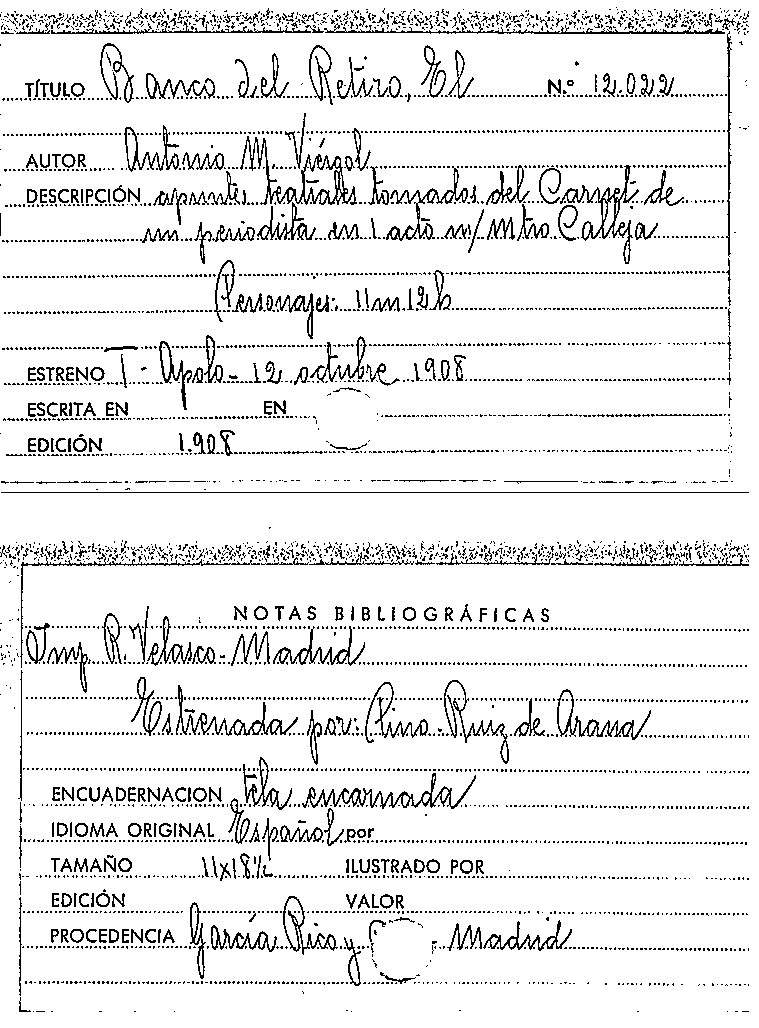 TÍTULO Banco del Retiro, El N.º 12.022
AUTOR Antonio M. Viérgol
DESCRIPCIÓN apuntes teatrales tomados del Carnet de
un periodista en 1 acto m/ Mtro Calleja
Personajes: 11 m 12 h
ESTRENO T. Apolo - 12 octubre 1908
ESCRITA EN EN
EDICIÓN 1.908
NOTAS BIBLIOGRÁFICAS
Imp. R. Velasco - Madrid
Estrenada por: Pino - Ruiz de Arana
ENCUADERNACION tela encarnada
IDIOMA ORIGINAL Español por
TAMAÑO 11x18½ ILUSTRADO POR
EDICIÓN VALOR
PROCEDENCIA García Rico y Madrid